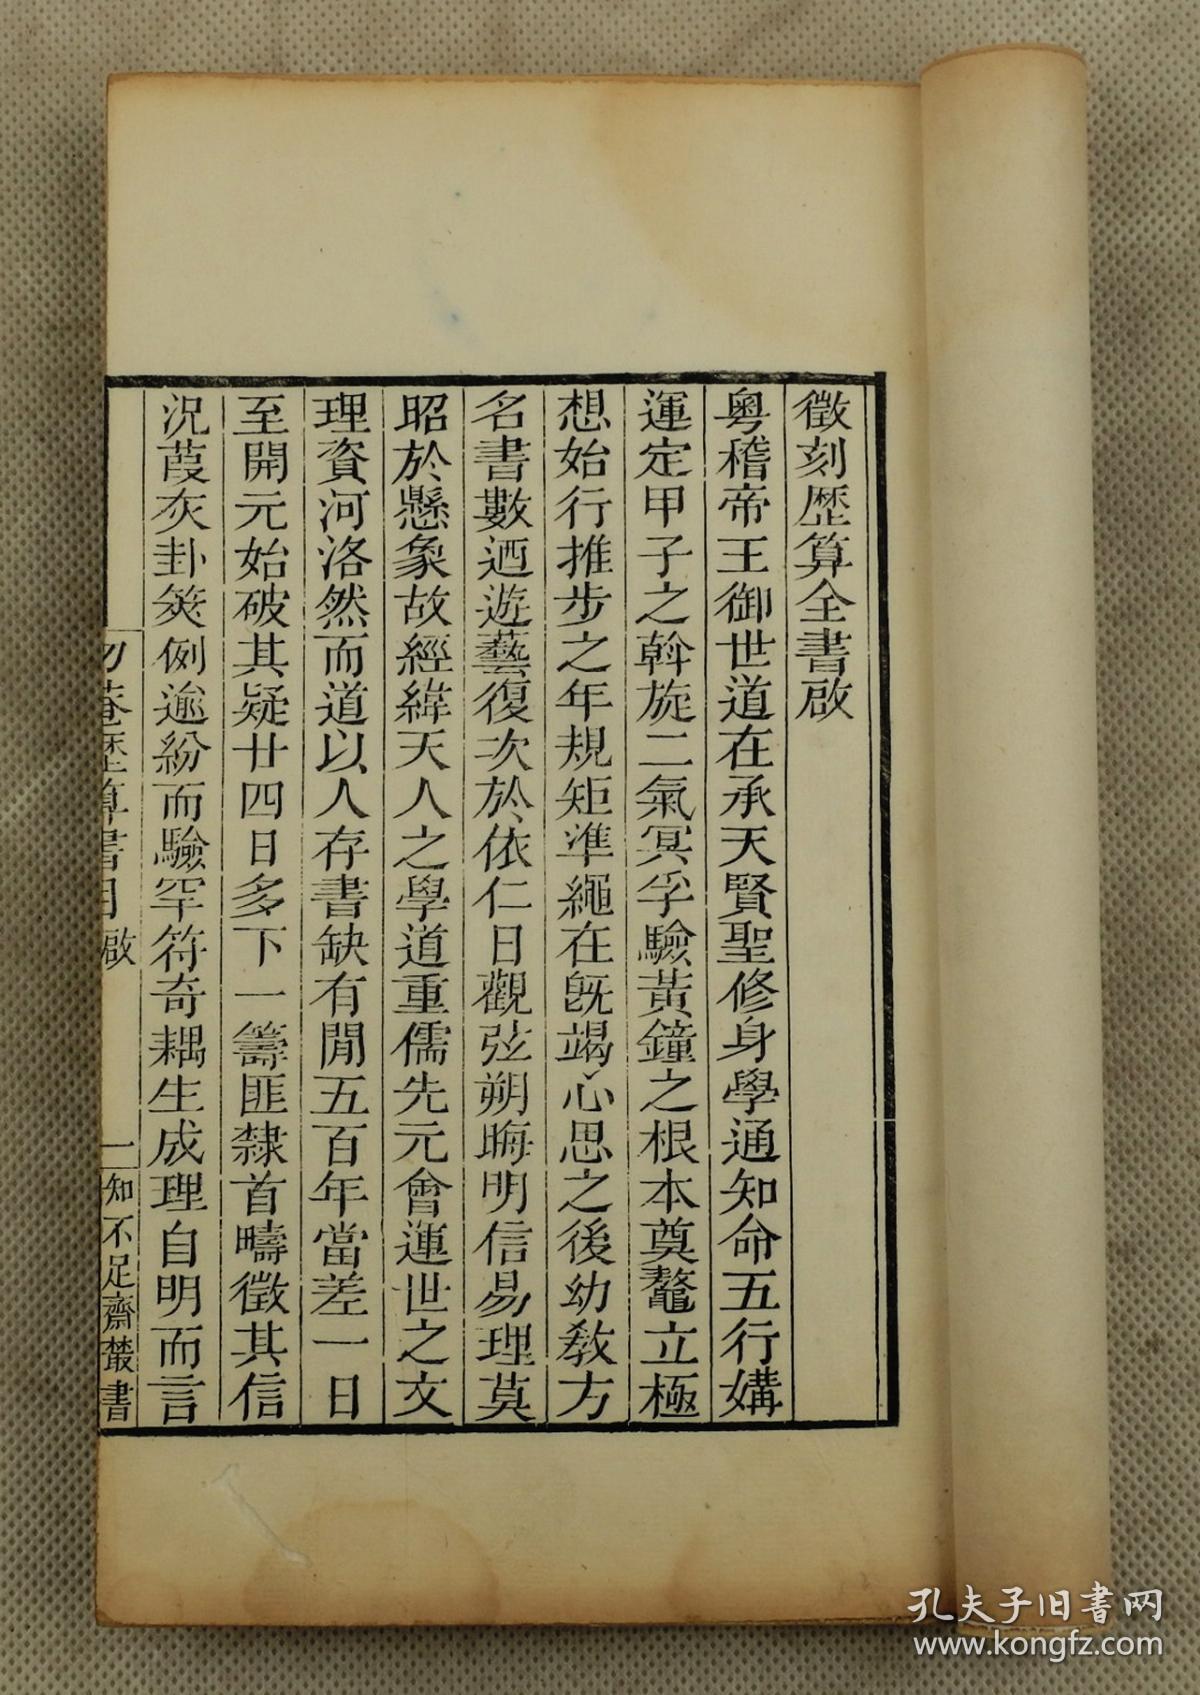 徵刻歴算全書啟
粤稽帝王御世道在承天賢聖修身學通知命五行媾
運定甲子之斡旋二氣冥孚驗黃鐘之根本奠鼇立極
想始行推步之年規矩準繩在旣竭心思之後幼敎方
名書數迺遊藝復次於依仁日觀弦朔晦明信易理莫
昭於懸象故經緯天人之學道重儒先元會運世之文
理資河洛然而道以人存書缺有閒五百年當差一日
至開元始破其疑廿四日多下一籌匪隸首疇徵其信
況葭灰卦筴例逾紛而驗罕符奇耦生成理自明而言
勿菴歴算書目 啟
一
知不足齋叢書
孔夫子旧書网
www.kongfz.com